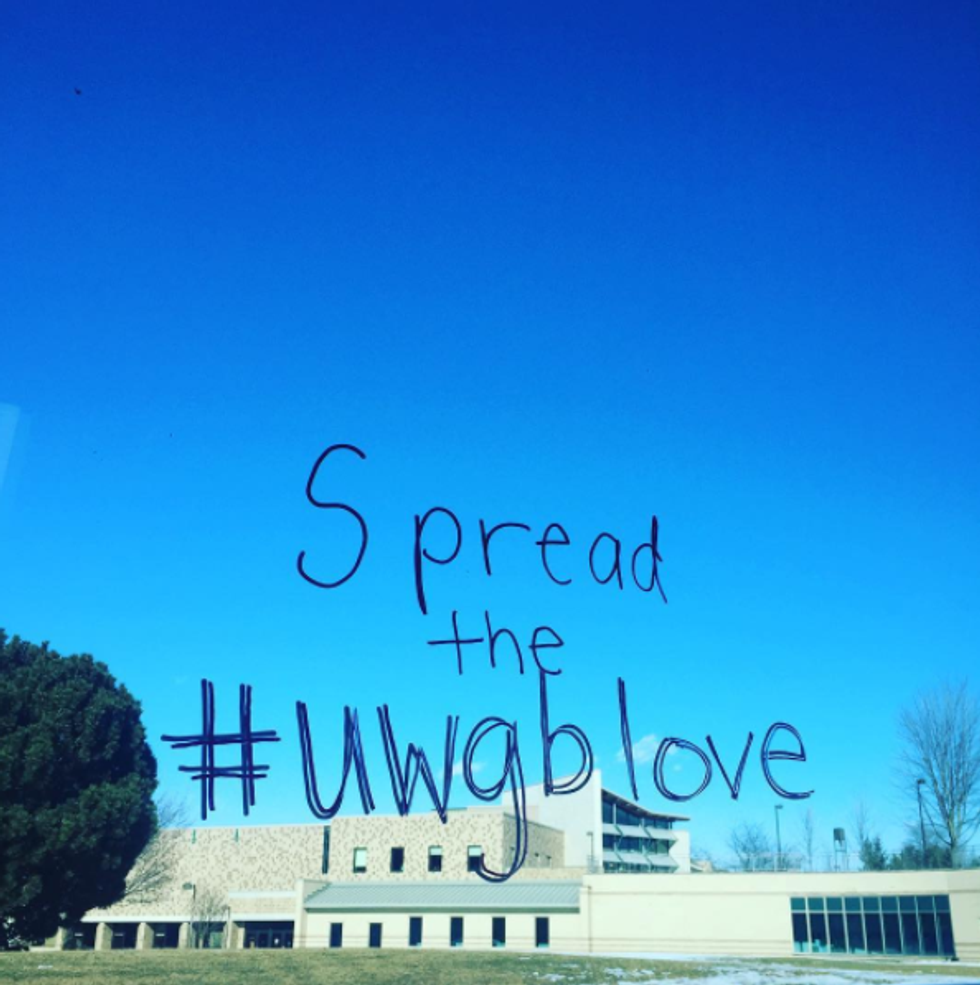 Spread
the
#uwgblove